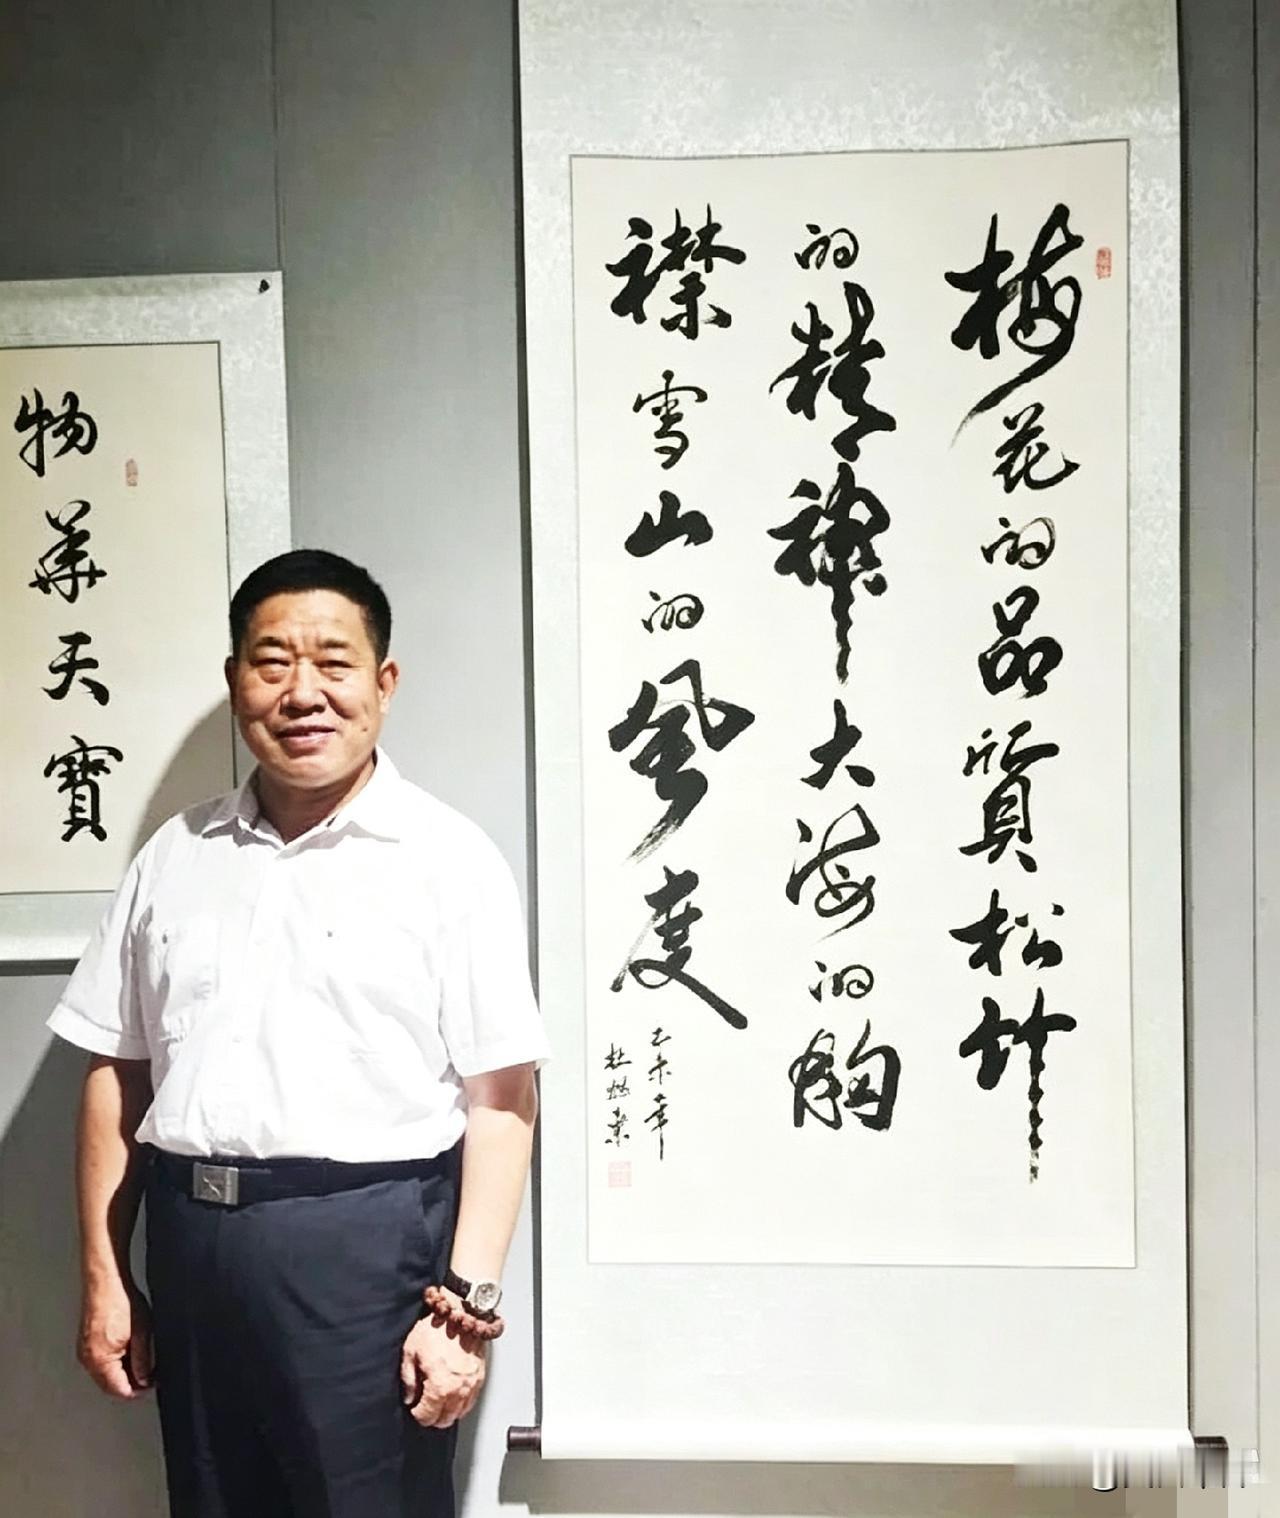 梅花的品質松竹
的精神大海的胸
襟雪山的風度
乙未年
杜
物華天寶